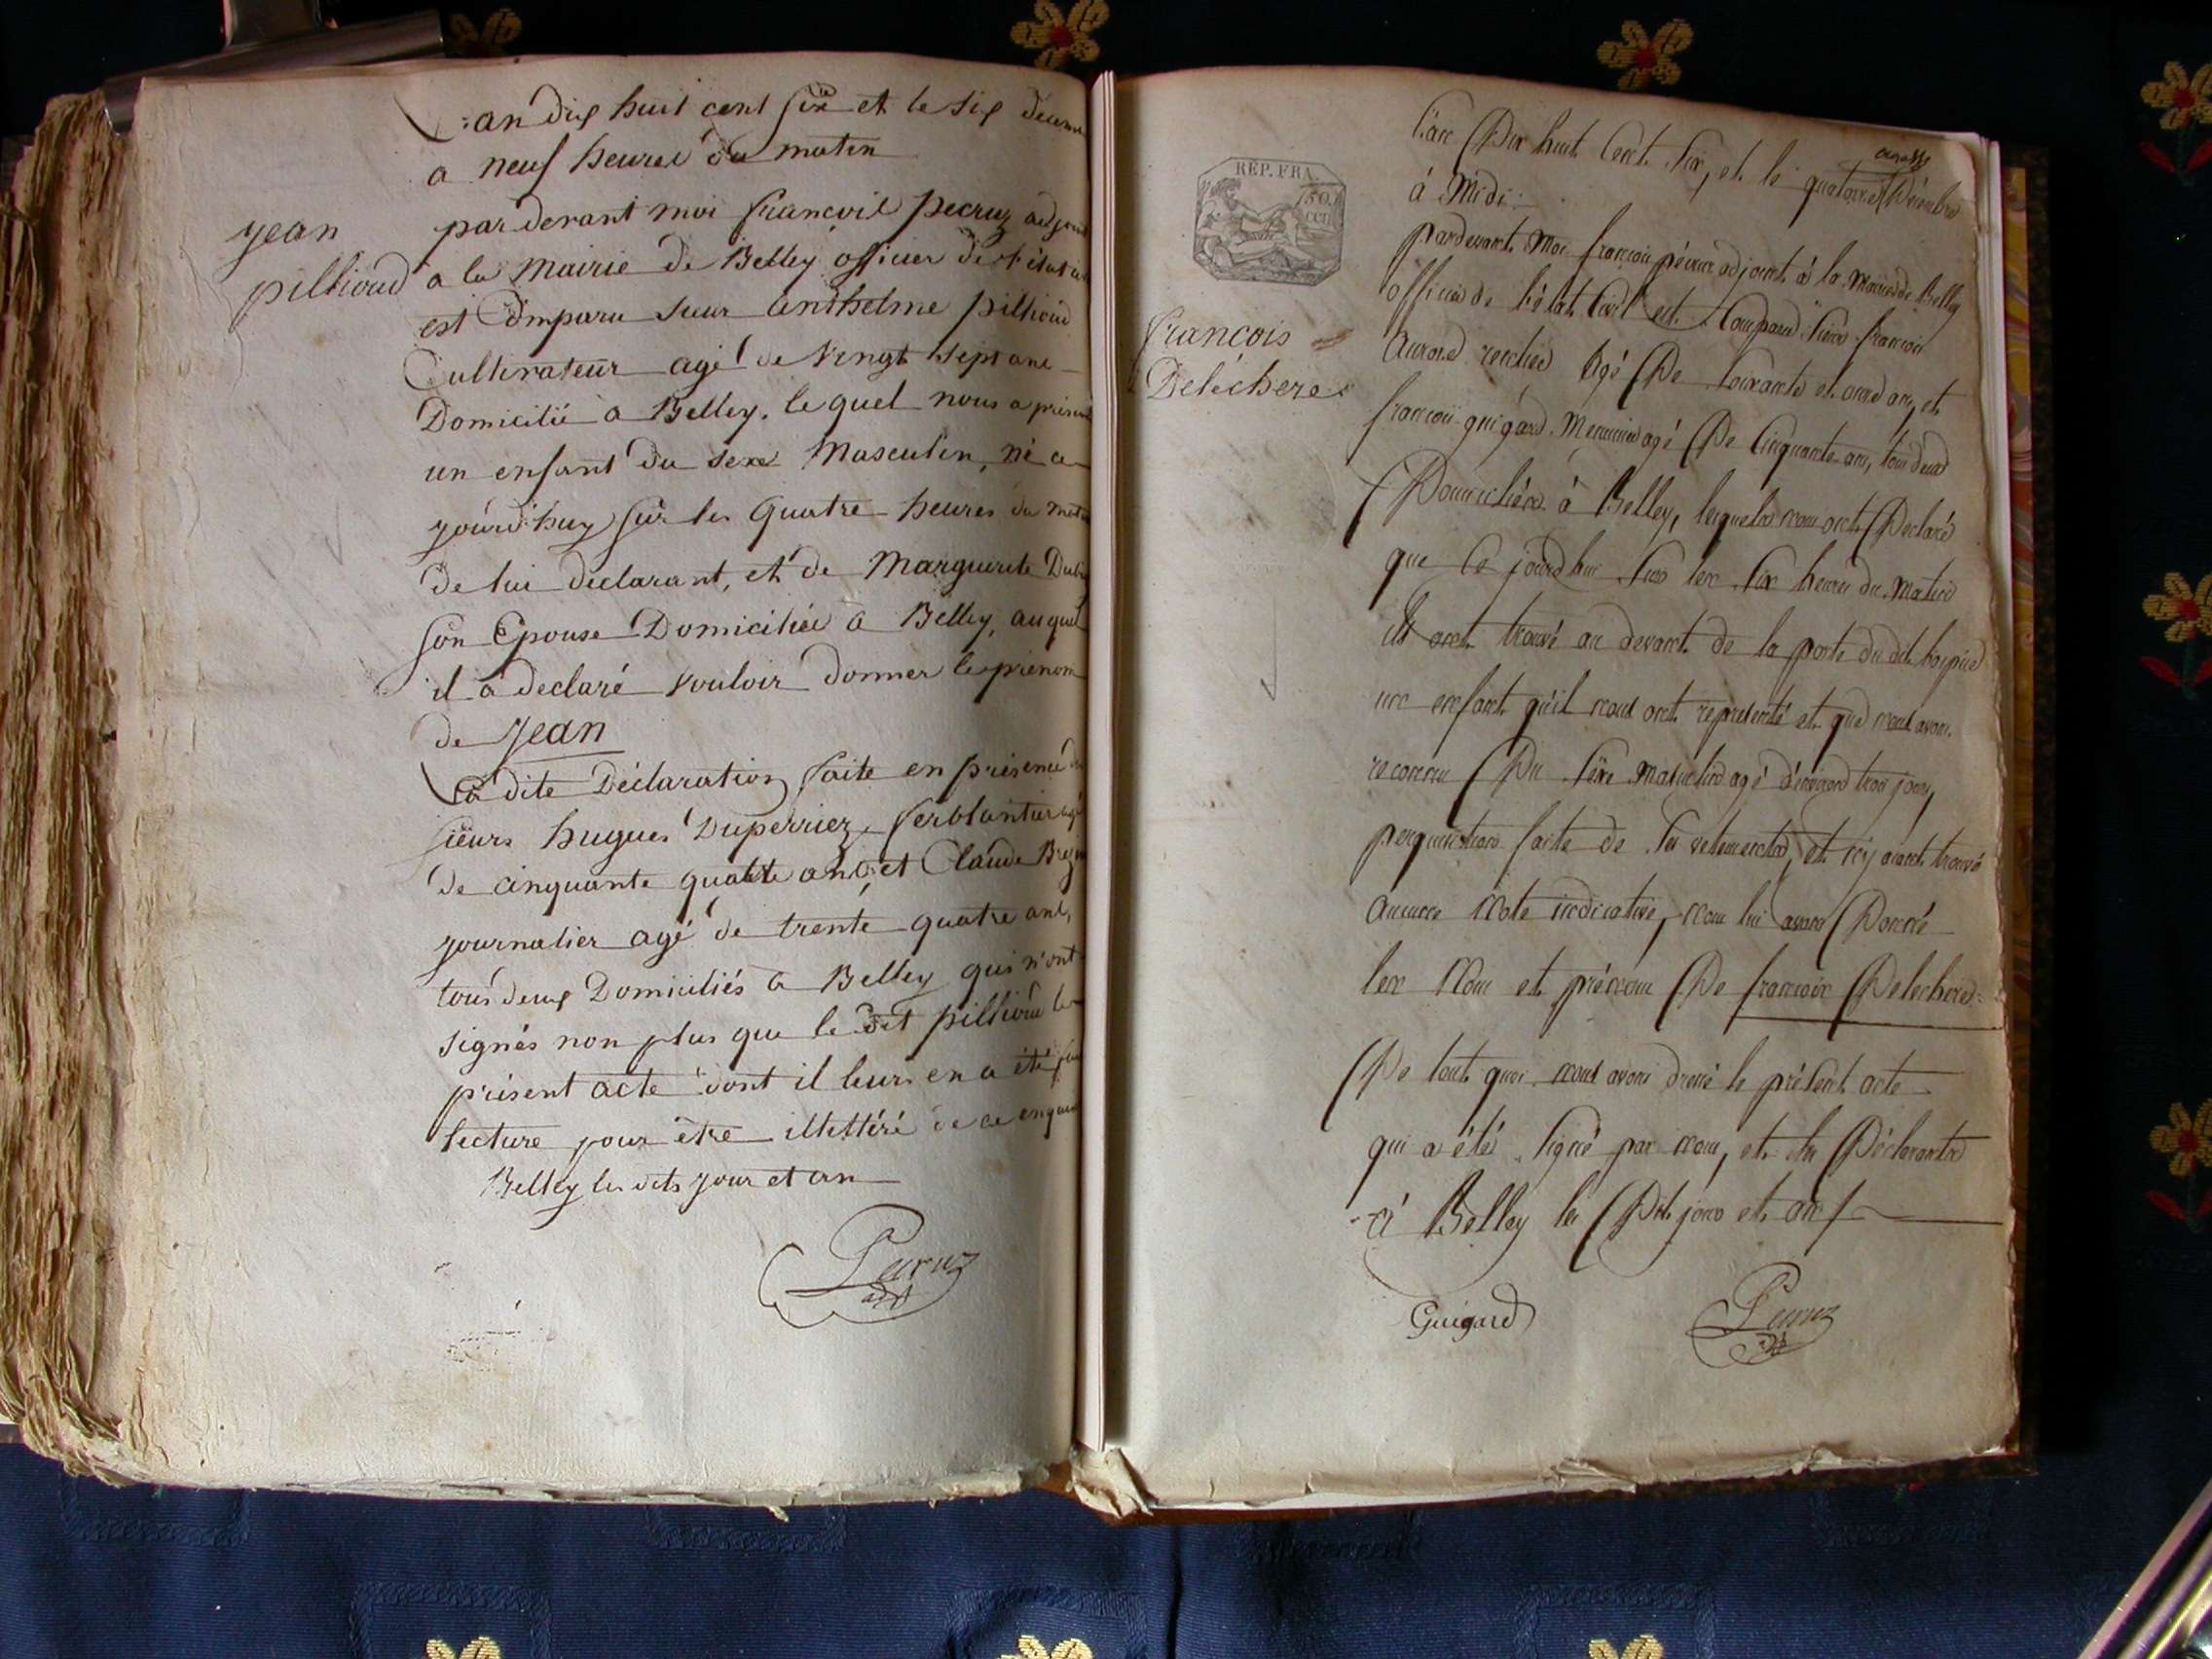 L'an dix huit cent six et le six décem
a neuf heures du matin
jean
pillioud
par devant moi francois pecruz adjoint
a la Mairie de Belley officier de l'état
est Comparu sieur anthelme pillioud
Cultivateur agé de vingt sept ans
Domicilié a Belley. lequel nous a présent
un enfant du sexe Masculin, né ce
jourd'huy sur les quatre heures du matin
de lui déclarant, et de Marguerite
son Epouse Domiciliée a Belley, auquel
il a declaré vouloir donner le prénom
de jean
La dite Déclaration faite en présence
sieurs hugues Duperriez, ferblantier agé
de cinquante quatre ans, et Claude
journalier agé de trente quatre ans,
tous deux Domiciliés a Belley qui n'ont
signés non plus que le dit pillioud le
présent acte dont il leurs en a été
lecture pour être illettéré de ce enquis
Belley les dits jour et an
Pecruz
adjt
REP. FRA.
50
CEN
francois
Deléchere
L'an Dix huit Cent Six, et le quatorze Décembre
à Midi
pardevant Moi françois pécruz adjoint à la Mairie de Belley
officier de l'état Civil est Comparu Sieur françois
rentier Agé De Soixante et onze ans, et
françois guigard Menuisier agé De Cinquante ans, tous deux
Domiciliés à Belley, lesquels nous ont Declaré
que Ce jourd'hui Sur les Six heures du Matin
ils ont trouvé au devant de la porte du dit hospice
un enfant qu'il nous ont représenté et que nous avons
reconnu Du Sexe Masculin agé d'environ trois jours,
perquisition faite de Ses vetements, et n'y aiant trouvé
aucune Note indicative, nous lui avons Donné
les Nom et prénom De francois Delechere
De tout quoi nous avons dressé le présent acte
qui a été Signé par nous, et les Déclarants
à Belley les Dit jour et an
Guigard
Pecruz
adjt